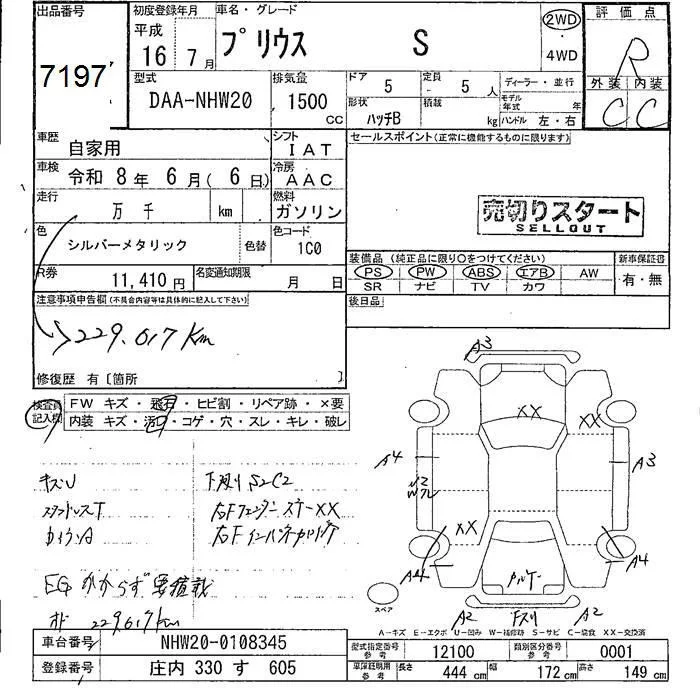 出品番号
7197
初度登録年月
平成
16年
7月
車名・グレード
プリウス S
2WD
・
4WD
評価点
R
外装 内装
C C
型式
DAA-NHW20
排気量
1500
CC
ドア
5
定員
5人
ディーラー・並行
形状
ハッチB
積載
kg
モデル年式 年
ハンドル 左・右
車歴
自家用
シフト
IAT
セールスポイント(正常に機能するものに限ります)
車検
令和 8年 6月( 6日)
冷房
AAC
走行
万 千 km
燃料
ガソリン
売切りスタート
SELLOUT
色
シルバーメタリック
色替
色コード
1C0
装備品(純正品に限り○をつけてください)
新車保証書
PS PW ABS エアB AW
有・無
SR ナビ TV カワ
R券
11,410円
名変通知期限
月 日
後日品
注意事項申告欄(不具合内容等は具体的に記入して下さい)
229.617km
修復歴 有〔箇所 〕
検査員記入欄
FW キズ・飛石・ヒビ割・リペア跡・×要
内装 キズ・汚れ・コゲ・穴・スレ・キレ・破レ
キズU
下廻り S2C2
スタッドレスT
右Fフェンダー ステーXX
右Fインパネ
EGかからず要積載
229617km
A3
XX
XX
A4
A3
XX
A4
A4
スペア
A2
F下リ
A2
A-キズ E-エクボ U-凹み W-補修跡 S-サビ C-腐食 XX-交換済
車台番号
NHW20-0108345
登録番号
庄内 330 す 605
型式指定番号
参考
12100
類別区分番号
参考
0001
車庫証明用
参考
長さ
444 cm
幅
172 cm
高さ
149 cm